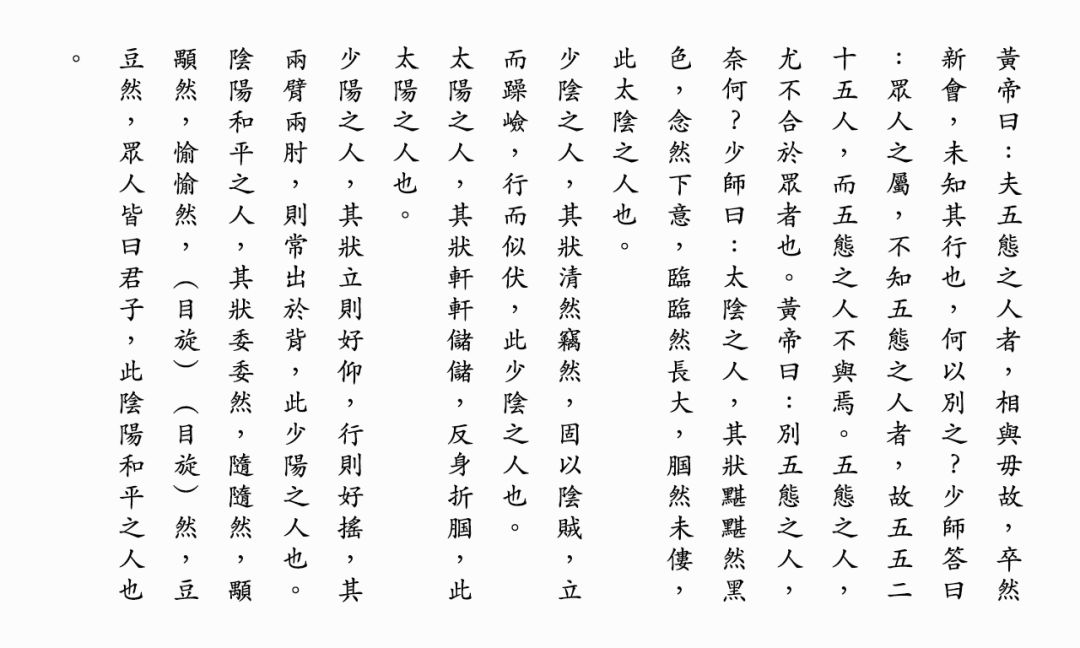 黃帝曰：夫五態之人者，相與毋故，卒然
新會，未知其行也，何以別之？少師答曰
：眾人之屬，不知五態之人者，故五五二
十五人，而五態之人不與焉。五態之人，
尤不合於眾者也。黃帝曰：別五態之人，
奈何？少師曰：太陰之人，其狀黮黮然黑
色，念然下意，臨臨然長大，膕然未僂，
此太陰之人也。
少陰之人，其狀清然竊然，固以陰賊，立
而躁嶮，行而似伏，此少陰之人也。
太陽之人，其狀軒軒儲儲，反身折膕，此
太陽之人也。
少陽之人，其狀立則好仰，行則好搖，其
兩臂兩肘，則常出於背，此少陽之人也。
陰陽和平之人，其狀委委然，隨隨然，顒
顒然，愉愉然，（目旋）（目旋）然，豆
豆然，眾人皆曰君子，此陰陽和平之人也
。